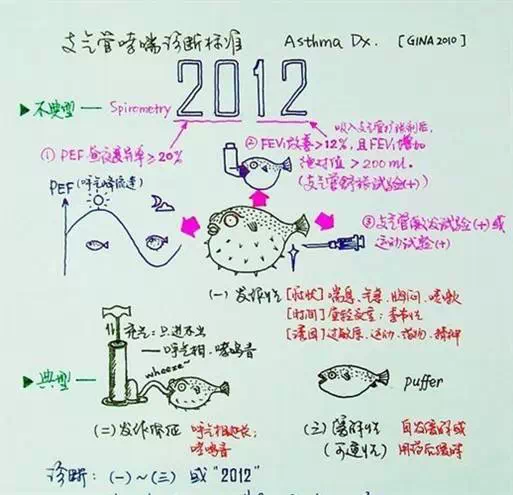 支气管哮喘诊断标准 Asthma Dx. [GINA 2010]
2012
▶不典型 — Spirometry
吸入支气管扩张剂后,
① PEF 昼夜变异率≥20%
② FEV₁改善>12%, 且FEV₁增加
绝对值>200ml.
(支气管舒张试验(+))
PEF (呼气峰流速)
③ 支气管激发试验(+)或
运动试验(+)
(一) 发作性 [症状] 喘息、气急、胸闷、咳嗽
[时间] 夜轻夜重; 季节性
[诱因] 过敏原、运动、药物、精神
充气: 只进不出
— 呼气相.哮鸣音
wheeze~
▶典型 —
puffer
(二) 发作体征 呼气相延长;
哮鸣音
(三) 缓解性 自发缓解或
(可逆性) 用药后缓解
诊断: (一)~(三) 或 "2012"